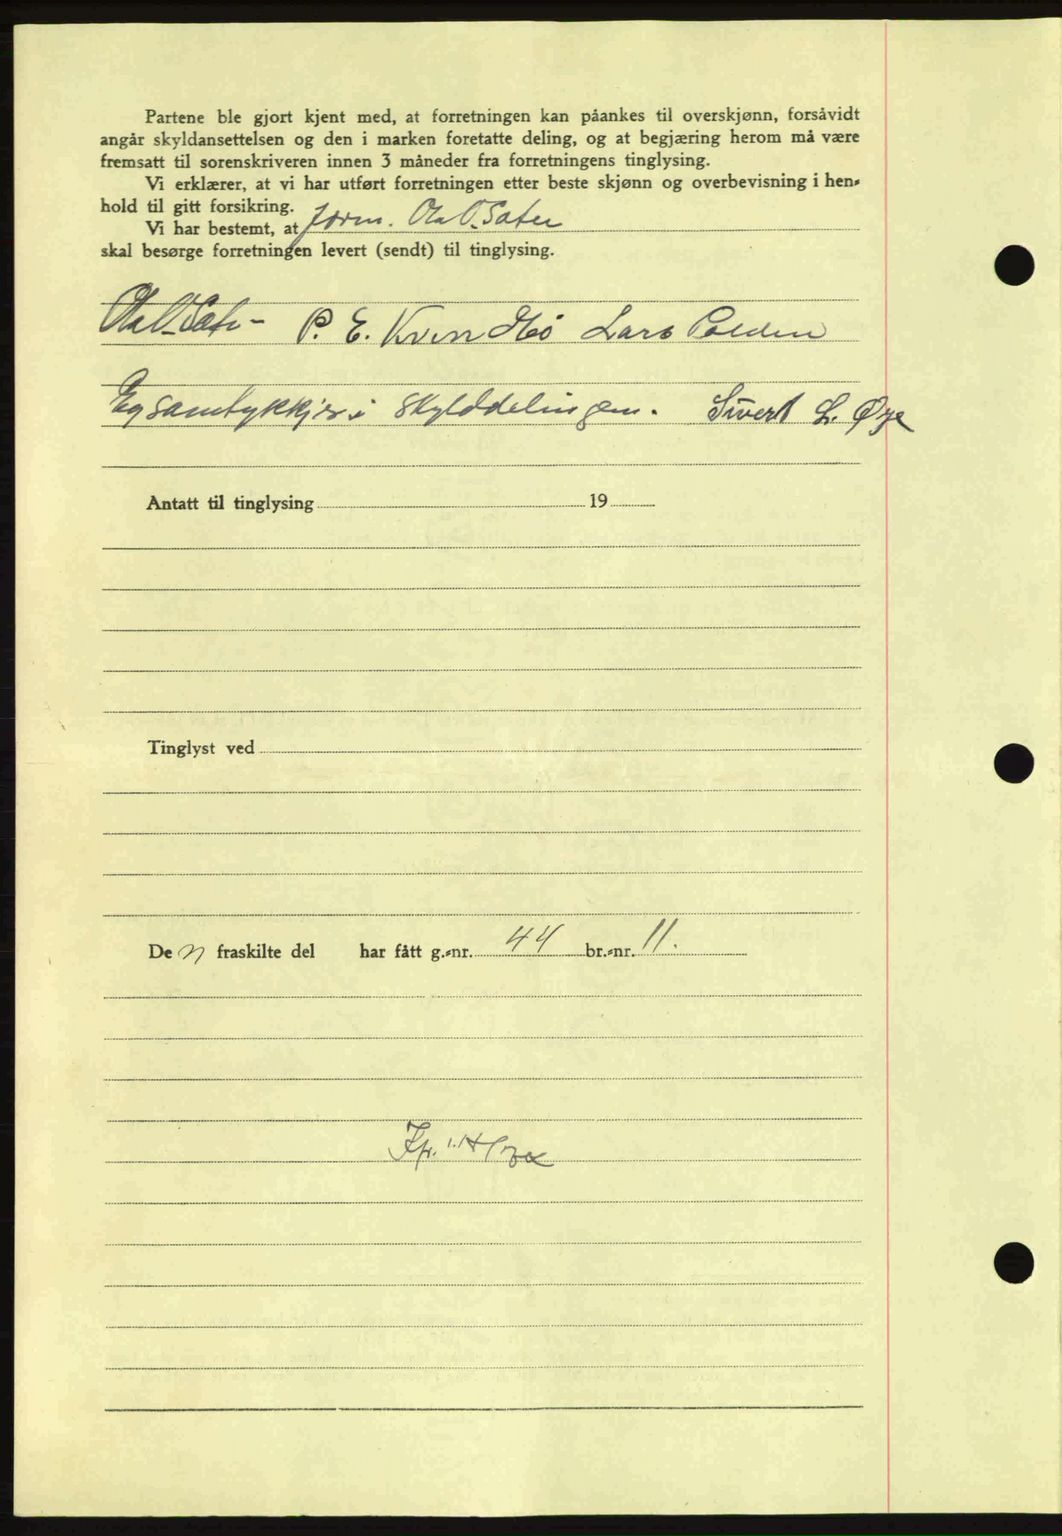 Partene ble gjort kjent med, at forretningen kan påankes til overskjønn, forsåvidt
angår skyldansettelsen og den i marken foretatte deling, og at begjæring herom må være
fremsatt til sorenskriveren innen 3 måneder fra forretningens tinglysing.
Vi erklærer, at vi har utført forretningen etter beste skjønn og overbevisning i hen-
hold til gitt forsikring.
Vi har bestemt, at form. Ola O. Sæter
skal besørge forretningen levert (sendt) til tinglysing.
Ola O. Sæter P. E. Kven Lars Polden
Eg samtykkjer i skylddelingen. Sivert L. Øye
Antatt til tinglysing 19
Tinglyst ved
De n fraskilte del har fått g.-nr. 44 br.-nr. 11.